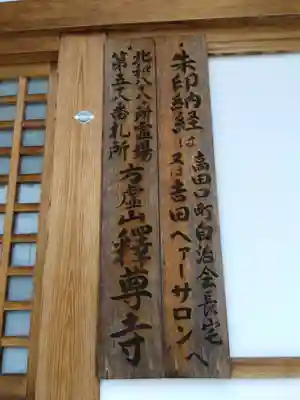 朱印納経は
高田口町自治会長宅へ
又は吉田ヘァーサロン
北和八十八ヶ所霊場
第五十八番札所
方虚山釋尊寺